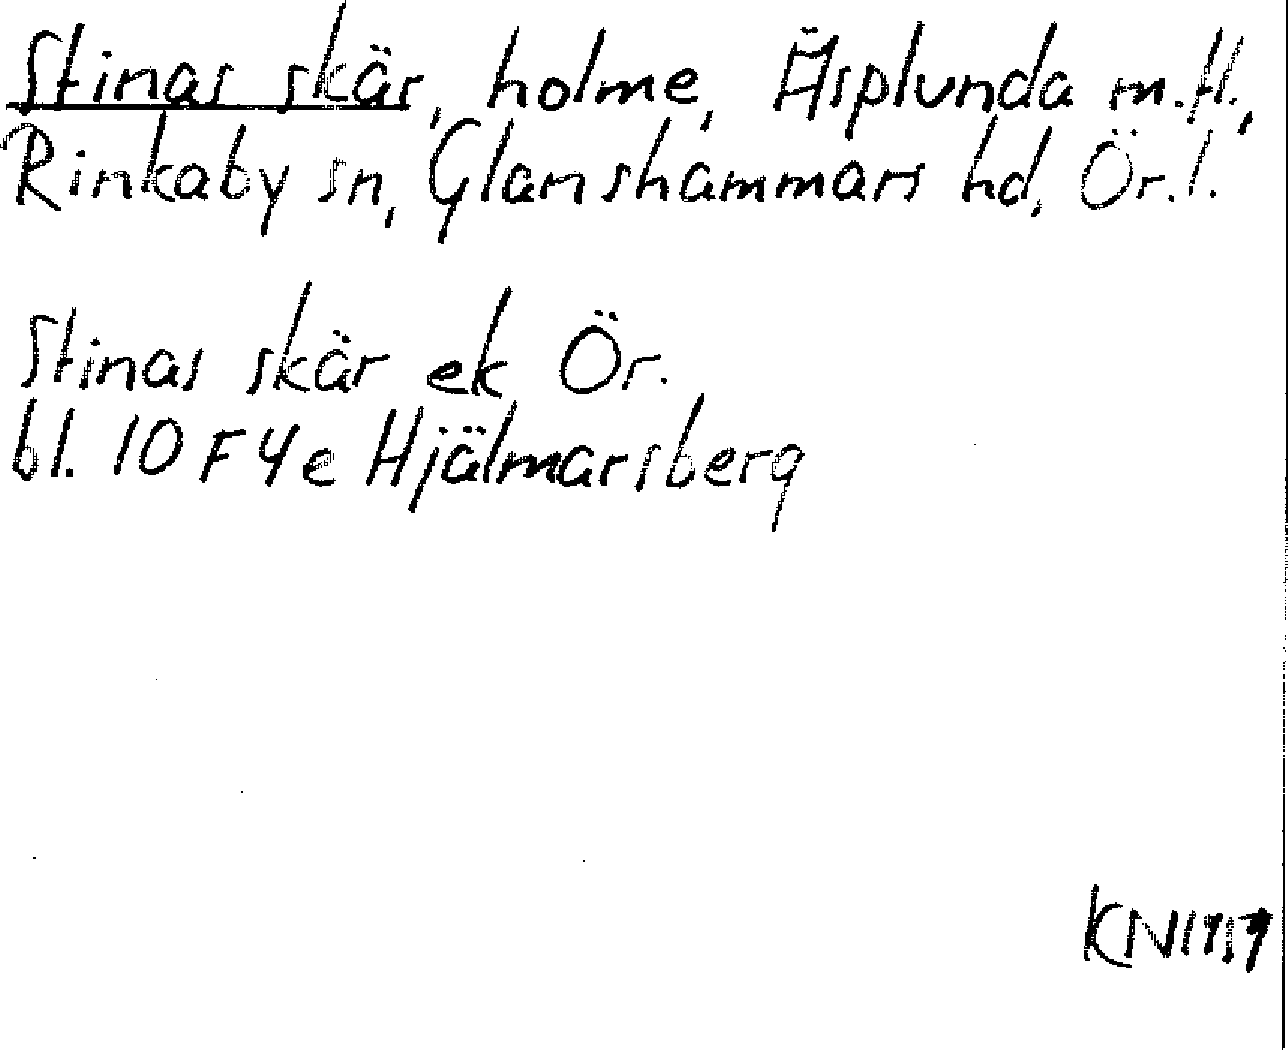 Stinas skär, holme, Äsplunda m.fl.,
Rinkaby sn, Glanshammars hd, Ör.l.
Stinas skär ek Ör.
bl. 10 F 4e Hjälmarsberg